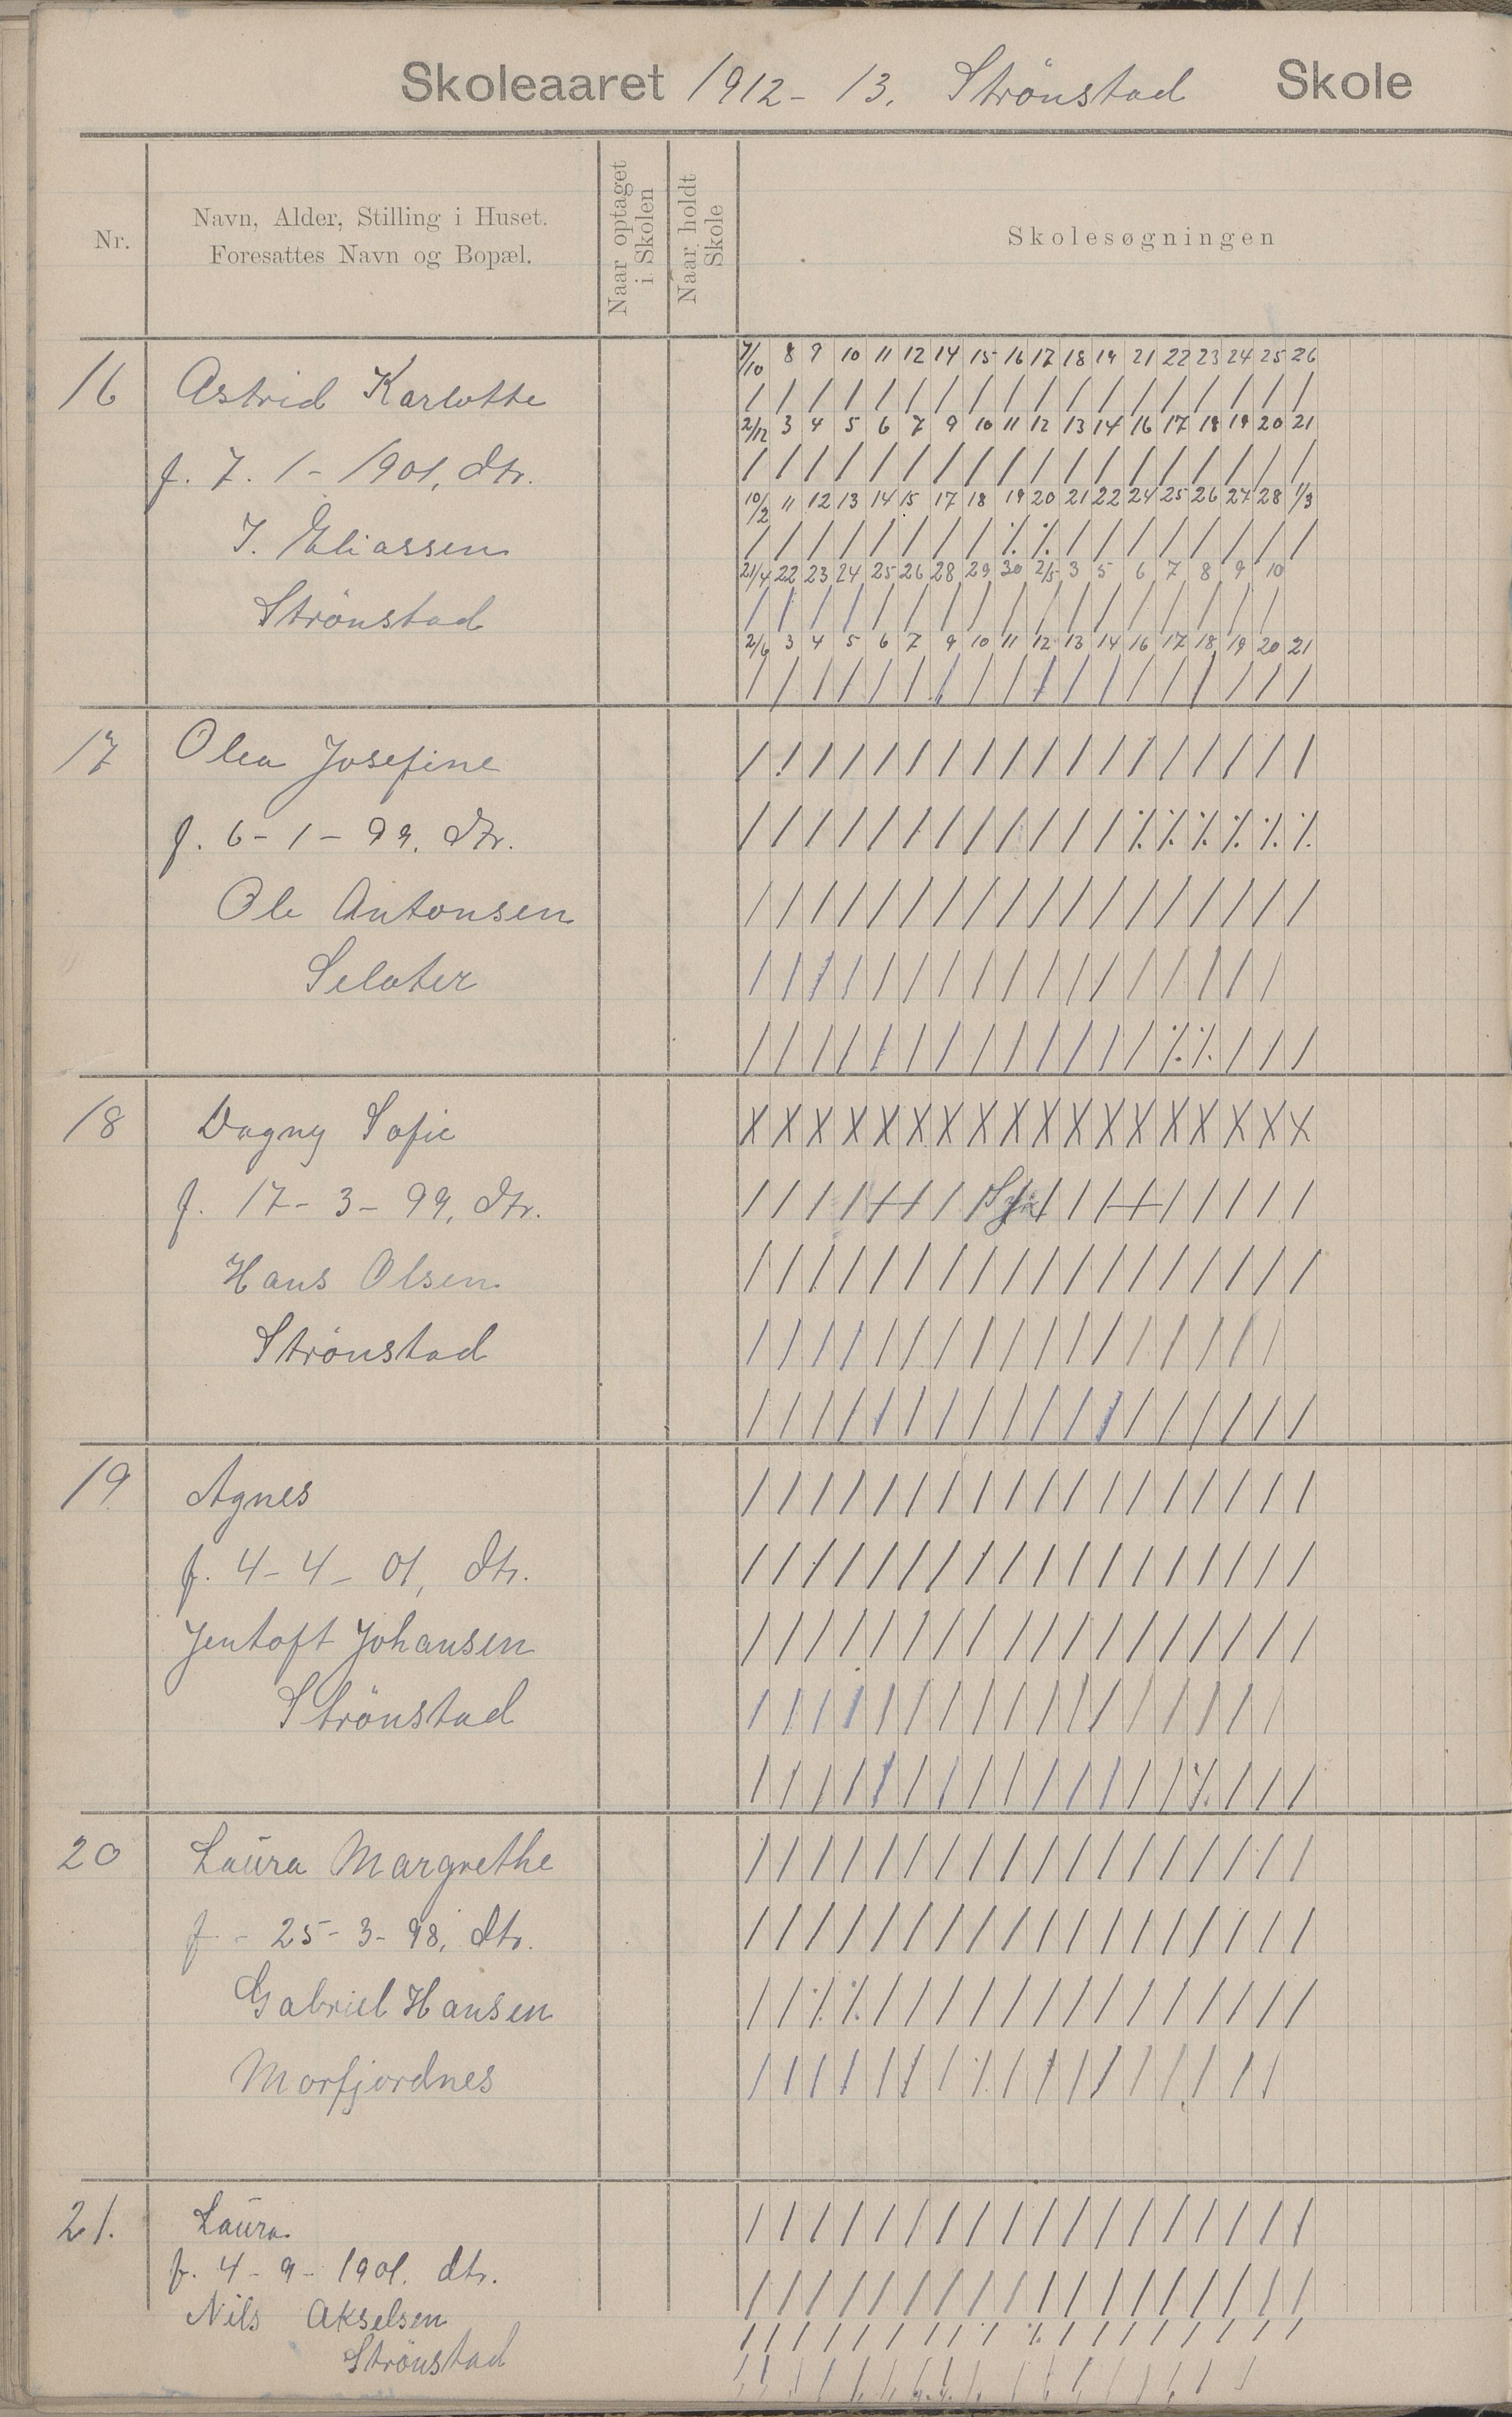 Skoleaaret 1912-13. Strönstad Skole
Nr.
Navn, Alder, Stilling i Huset.
Foresattes Navn og Bopæl.
Naar optaget
i Skolen
Naar holdt
Skole
Skolesøgningen
7/10 8 9 10 11 12 14 15 16 17 18 19 21 22 23 24 25 26
16 Astrid Karlotte
2/12 3 4 5 6 7 9 10 11 12 13 14 16 17 18 19 20 21
f. 7. 1 - 1901, dtr.
10/2 11 12 13 14 15 17 18 19 20 21 22 24 25 26 27 28 1/3
J. Eliassen
21/4 22 23 24 25 26 28 29 30 2/5 3 5 6 7 8 9 10
Strönstad
2/6 3 4 5 6 7 9 10 11 12 13 14 16 17 18 19 20 21
17 Olea Josefine
f. 6 - 1 - 99. dtr.
Ole Antonsen
Selater
18 Dagny Sofie
f. 17 - 3 - 99, dtr.
Hans Olsen
Strönstad
19 Agnes
f. 4 - 4 - 01, dtr.
Jentoft Johansen
Strönstad
20 Laura Margrethe
f - 25 - 3 - 98, dtr.
Gabriel Hansen
Morfjordnes
21. Laura
f. 4 - 9 - 1901. dtr.
Nils Akselsen
Strönstad